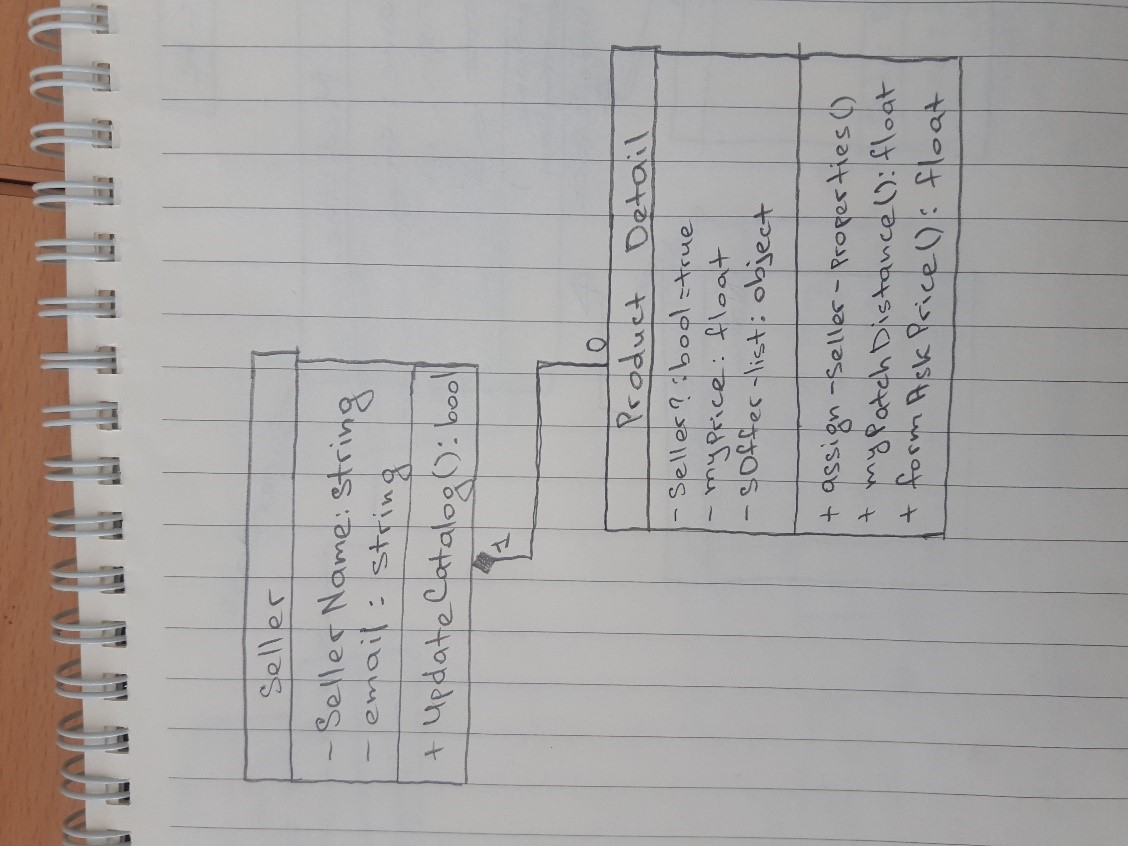 Seller
- Seller Name: string
- email: string
+ UpdateCatalog(): bool
1
0
Product Detail
- Seller?: bool=true
- myPrice: float
- sOffer-list: object
+ assign-seller-Properties()
+ myPatchDistance(): float
+ formAskPrice(): float